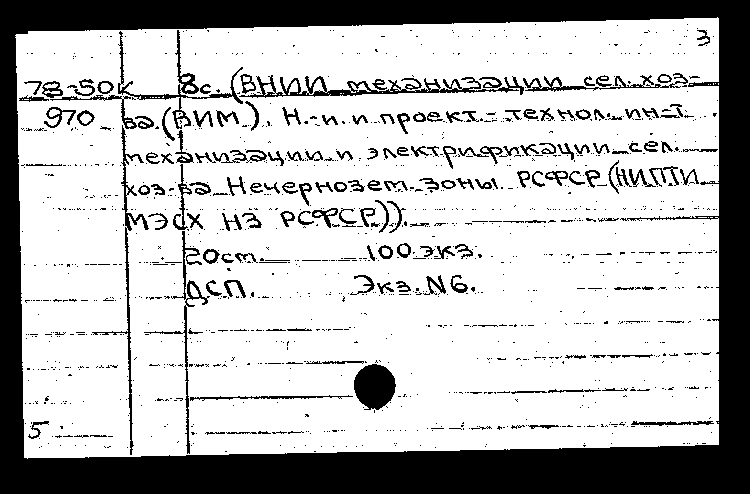 3
78-50к 8с. (ВНИИ механизации сел. хоз-
970 ва (ВИМ). Н.-и. и проект.-технол. ин-т
механизации и электрификации сел.
хоз-ва Нечернозем. зоны РСФСР (НИПТИ
МЭСХ НЗ РСФСР)).
20ст. 100 экз.
ДСП. Экз. N6.
5